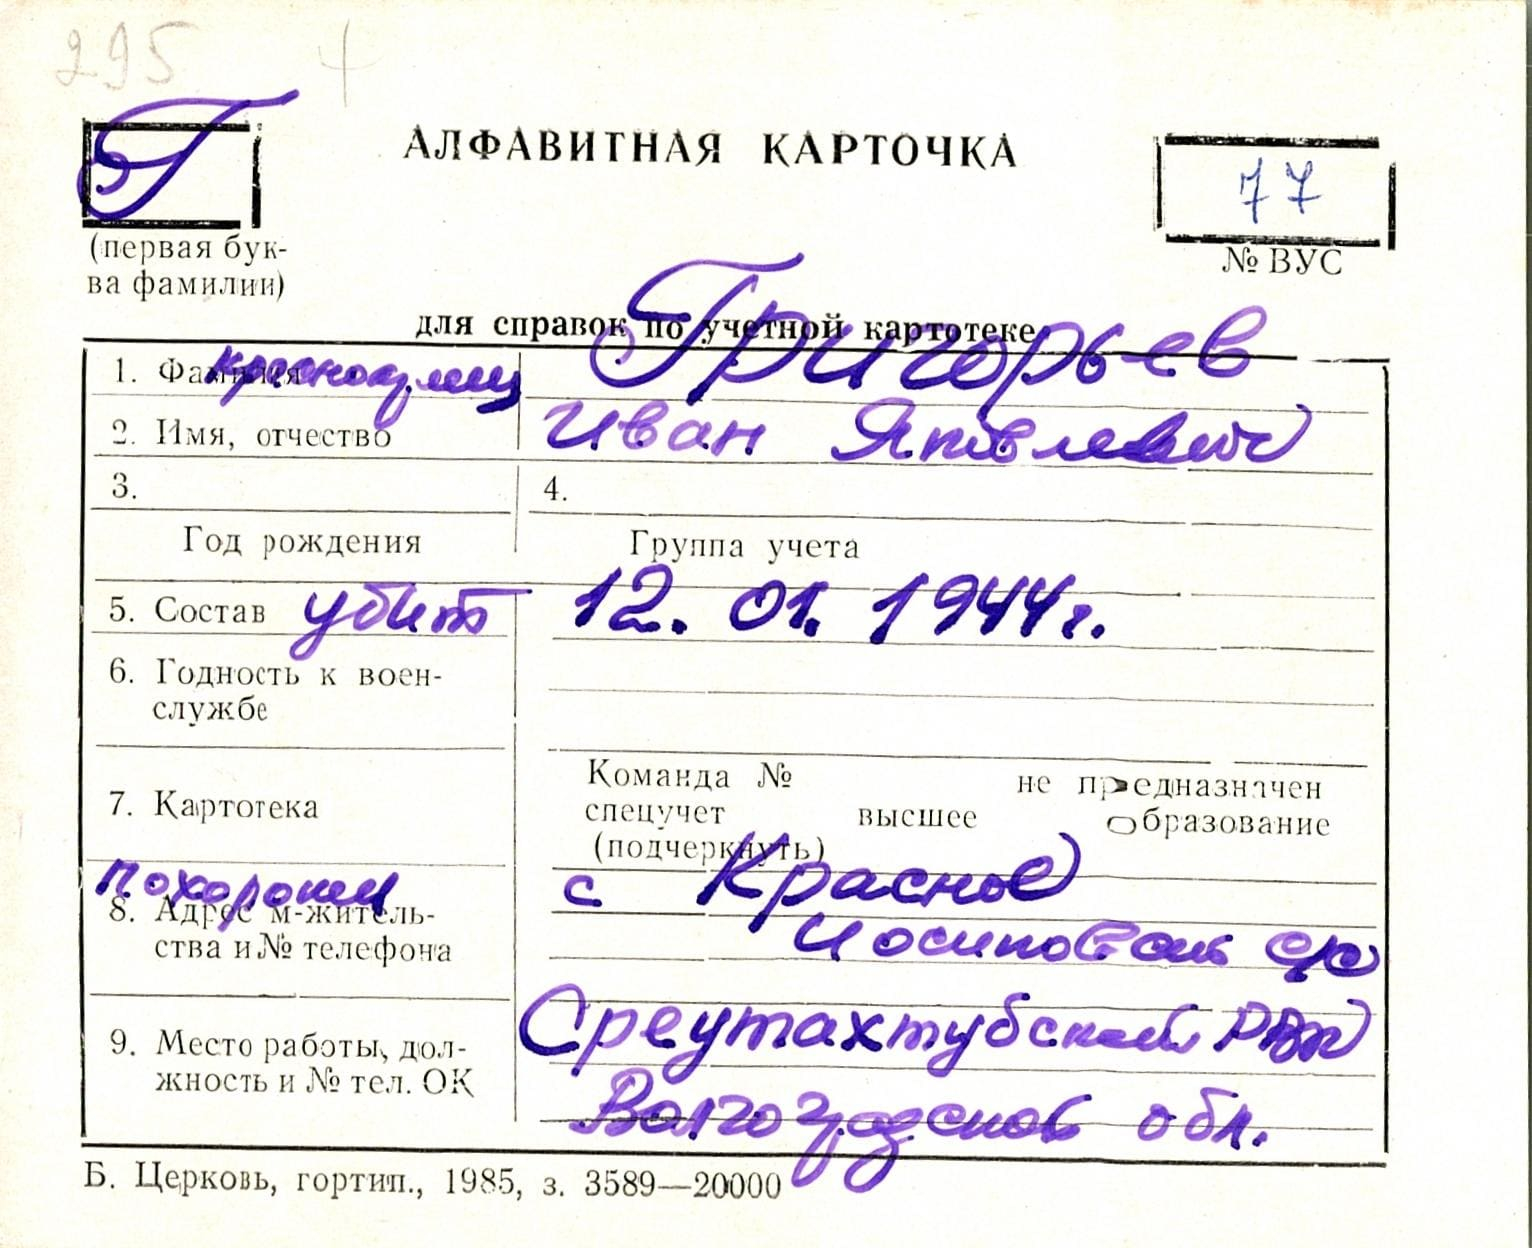 295 4
Г
АЛФАВИТНАЯ КАРТОЧКА
77
(первая бук-
ва фамилии)
№ ВУС
для справок по учетной картотеке
1. Фамилия красноармеец Григорьев
2. Имя, отчество Иван Яковлевич
3. 4.
Год рождения Группа учета
5. Состав убит 12.01.1944г.
6. Годность к воен-
службе
7. Картотека
Команда № не предназначен
спецучет высшее образование
(подчеркнуть)
похоронен с Красное
8. Адрес м-житель-
ства и № телефона
с/с
9. Место работы, дол-
жность и № тел. ОК
Волгоградской обл.
Б. Церковь, гортип., 1985, з. 3589—20000